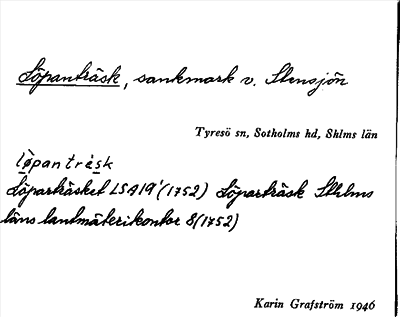 Löpanträsk, sankmark v. Stensjön
Tyresö sn, Sotholms hd, Shlms län
lø̀pantrè̱s̱k
Löparträsket LSA19¹(1752) Löparträsk Sthlms
läns lantmäterikontor 8(1752)
Karin Grafström 1946